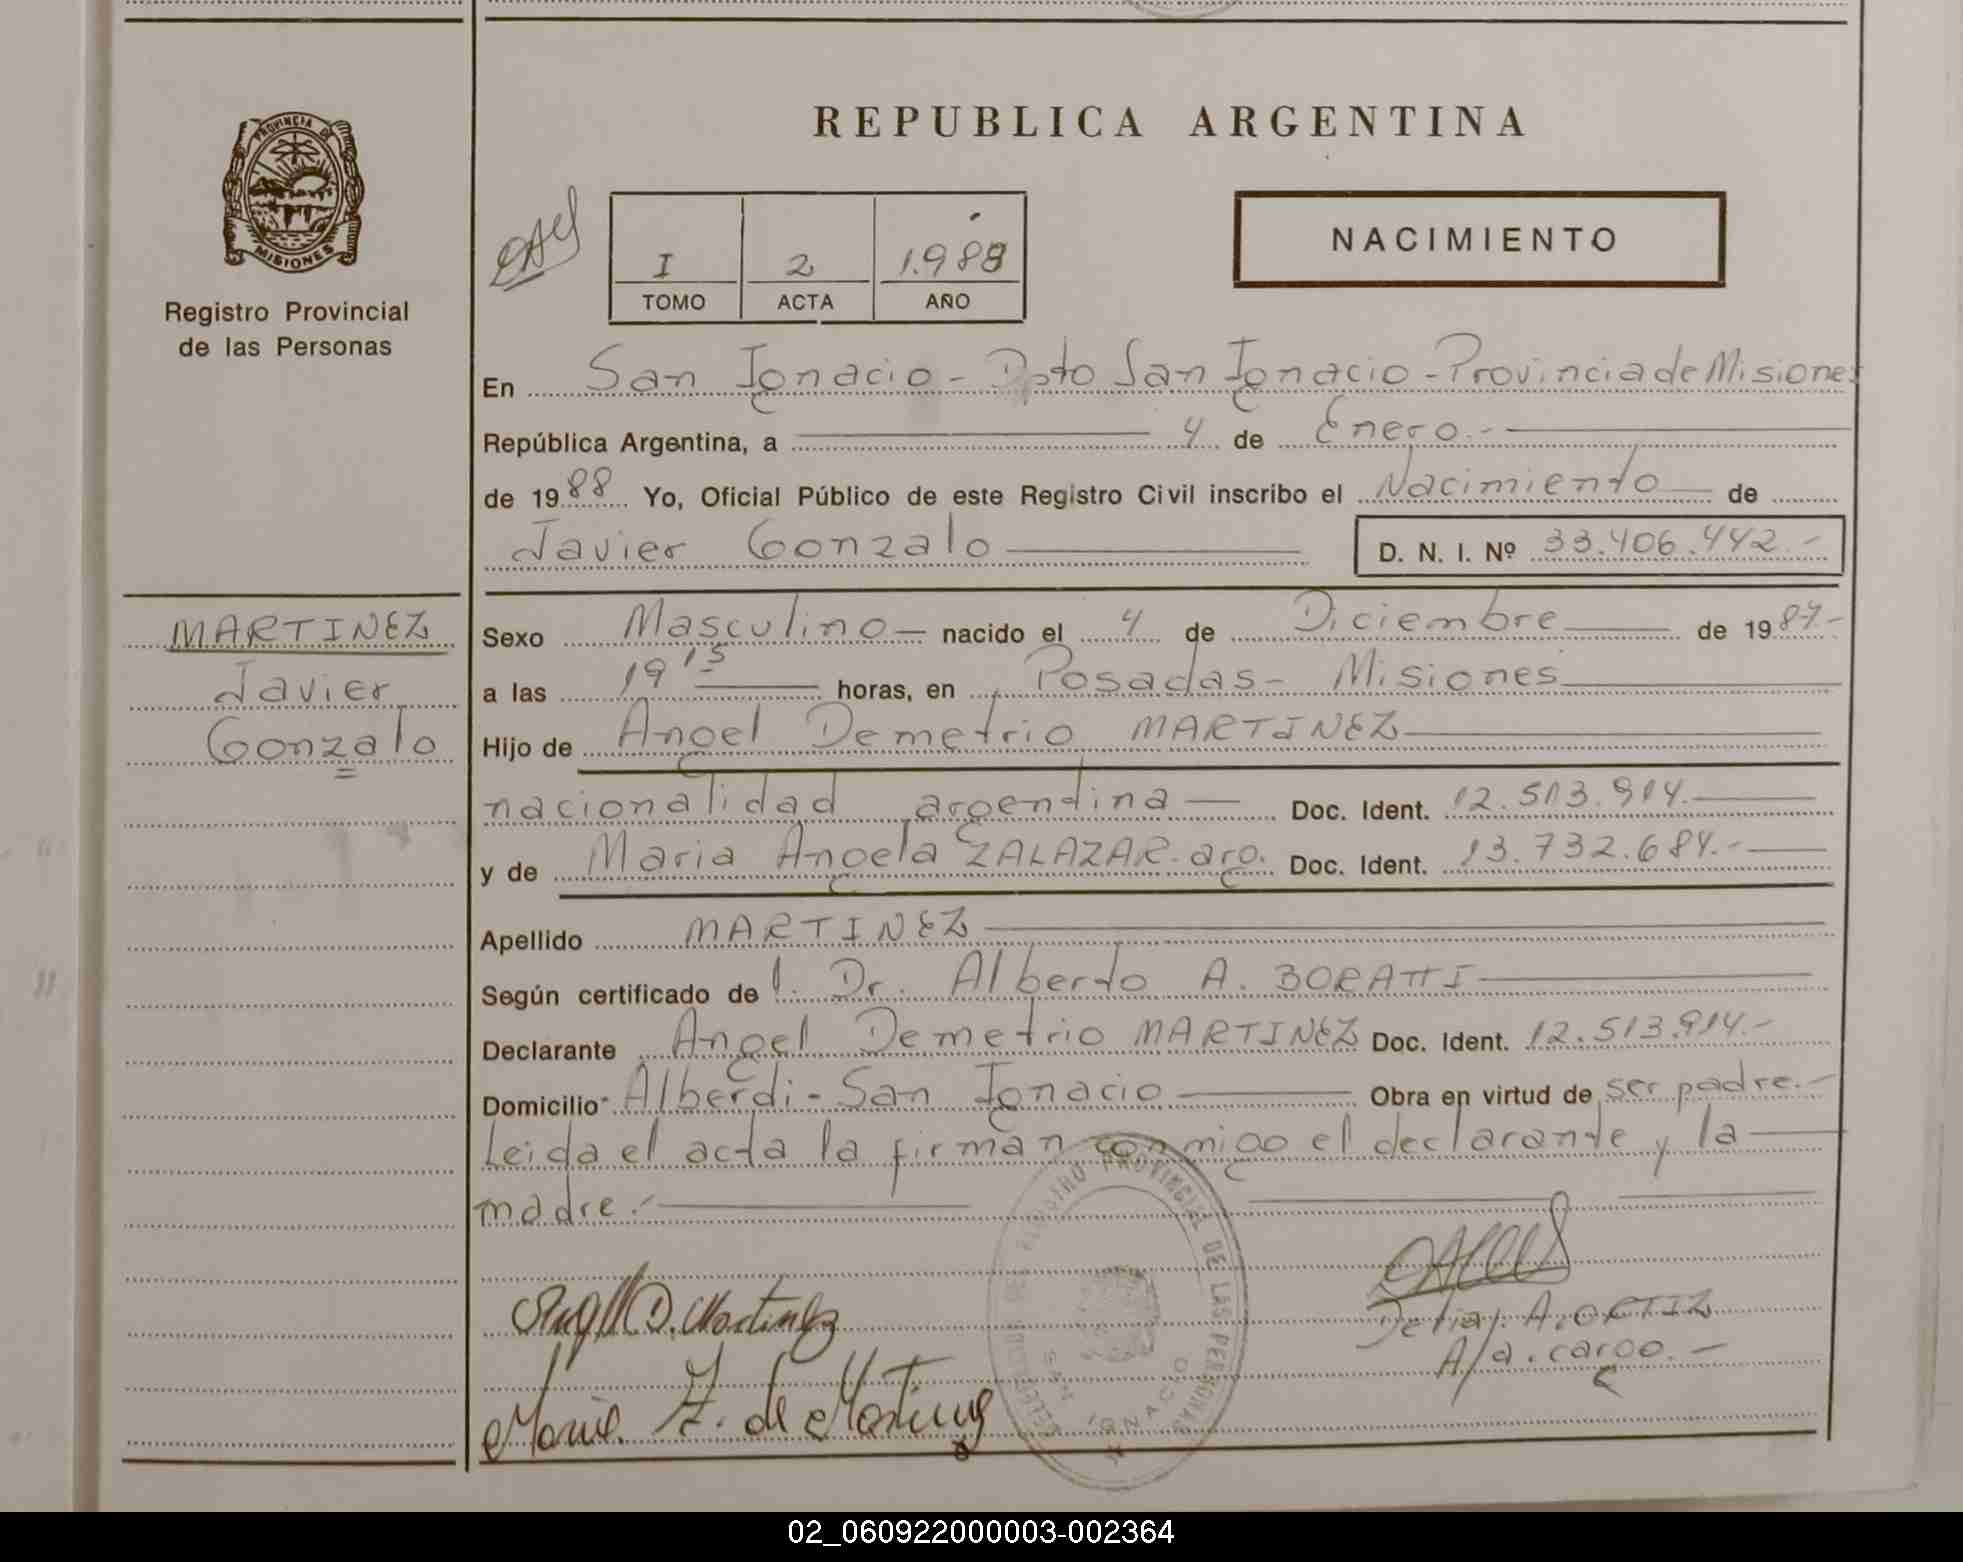 REPUBLICA ARGENTINA
PROVINCIA DE
MISIONES
Registro Provincial
de las Personas
I 2 1.988
TOMO ACTA AÑO
NACIMIENTO
En San Ignacio - Dpto San Ignacio - Provincia de Misiones
República Argentina, a 4 de Enero.-
de 1988 Yo, Oficial Público de este Registro Civil inscribo el Nacimiento de
Javier Gonzalo D. N. I. Nº 33.406.442.-
MARTINEZ
Javier
Gonzalo
Sexo Masculino nacido el 4 de Diciembre de 1987.-
a las 19 15 horas, en Posadas - Misiones
Hijo de Angel Demetrio MARTINEZ
nacionalidad argentina Doc. Ident. 12.513.914.
y de Maria Angela ZALAZAR. arg. Doc. Ident. 13.732.684.-
Apellido MARTINEZ
Según certificado de l. Dr. Alberto A. BORATTI
Declarante Angel Demetrio MARTINEZ Doc. Ident. 12.513.914.-
Domicilio Alberdi - San Ignacio Obra en virtud de ser padre.-
Leida el acta la firman conmigo el declarante y la
madre.-
Angel D. Martinez
Maria Z. de Martinez
A. ORTIZ
A/a. cargo.-
REGISTRO PROVINCIAL DE LAS PERSONAS
SAN IGNACIO
02_060922000003-002364